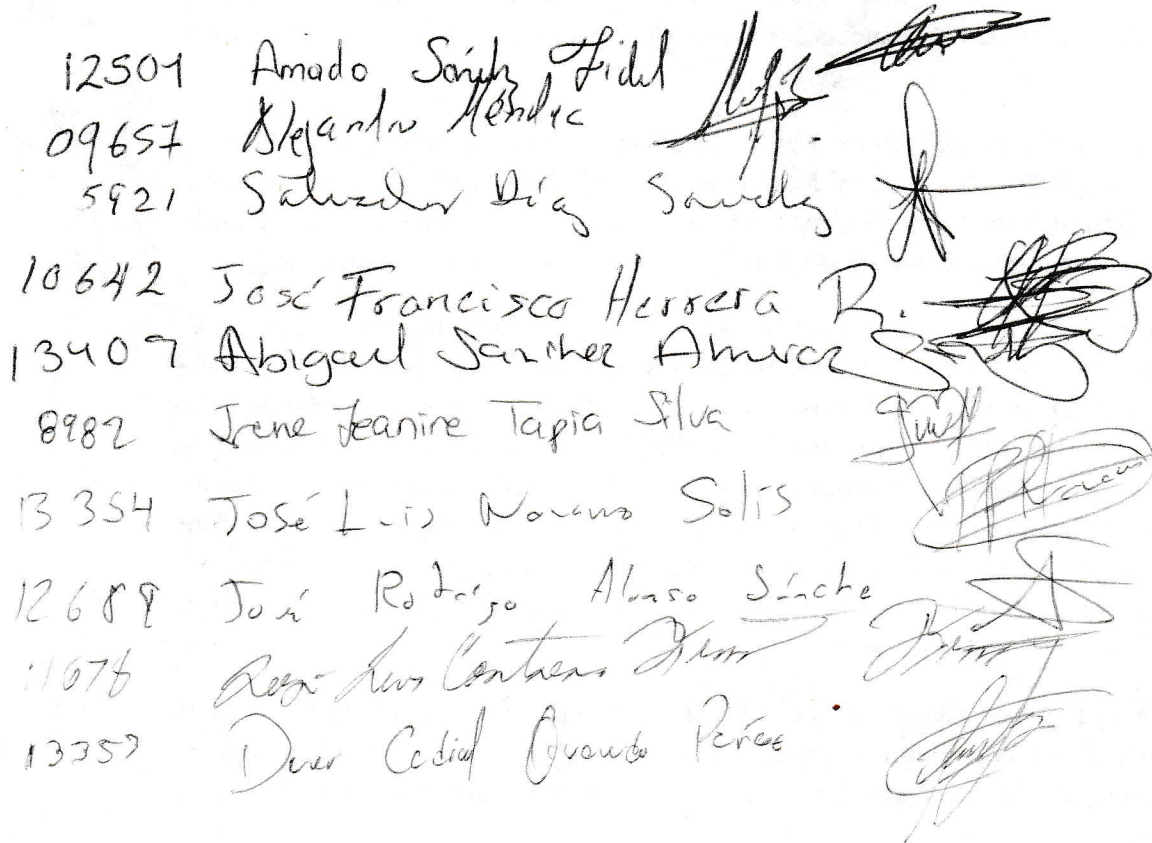 12501 Amado Sánchez Fidel
09657 Alejandro Méndez
5921 Salvador Díaz Sánchez
10642 José Francisco Herrera R.
13409 Abigail Sánchez
8982 Irene Jeanine Tapia Silva
13354 José Luis Navarro Solís
12689 José Rodrigo Alonso Sánche
11678 Luis Contreras
13353 Pérez